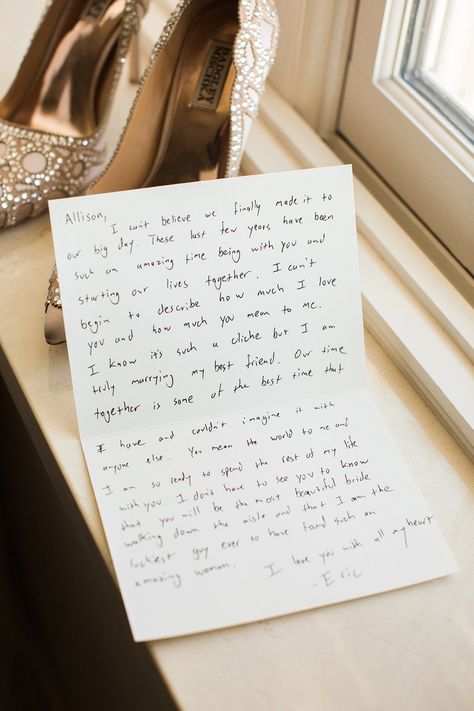 BADGLEY
MISCHKA
Allison,
I can't believe we finally made it to
our big day. These last few years have been
such an amazing time being with you and
starting our lives together. I can't
begin to describe how much I love
you and how much you mean to me.
I know it's such a cliche but I am
truly marrying my best friend. Our time
together is some of the best time that
I have and couldn't imagine it with
anyone else. You mean the world to me and
I am so ready to spend the rest of my life
with you. I don't have to see you to know
that you will be the most beautiful bride
walking down the aisle and that I am the
luckiest guy ever to have found such an
amazing woman. I love you with all my heart
- Eric